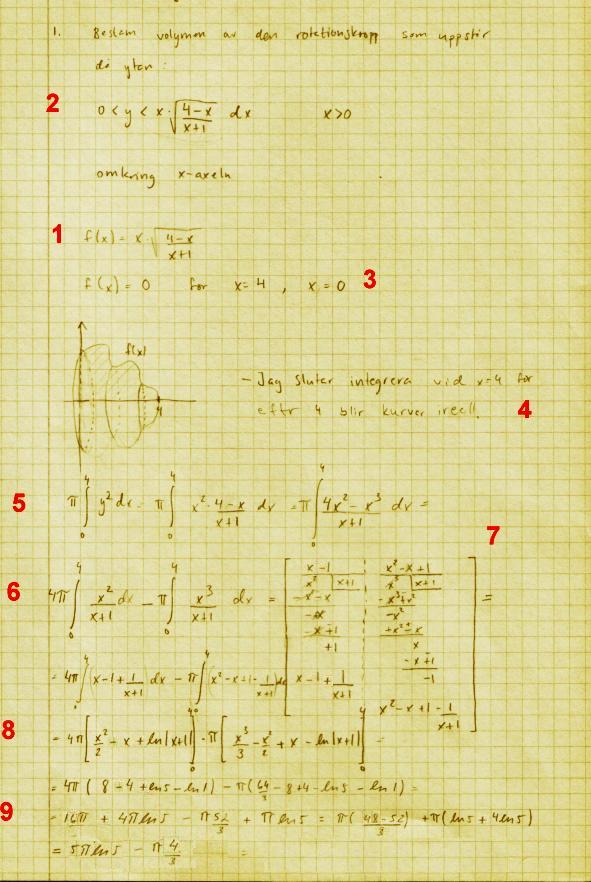 1. Bestäm volymen av den rotationskropp som uppstår
då ytan:
2 0 < y < x · √((4-x)/(x+1)) dx x>0
omkring x-axeln
1 f(x) = x √((4-x)/(x+1))
f(x) = 0 för x=4 , x=0 3
f(x)
4
- Jag slutar integrera vid x=4 för
efter 4 blir kurvan ireell. 4
5 π ∫₀⁴ y² dx = π ∫₀⁴ x² · (4-x)/(x+1) dx = π ∫₀⁴ (4x² - x³)/(x+1) dx =
7
6 4π ∫₀⁴ x²/(x+1) dx - π ∫₀⁴ x³/(x+1) dx = [ x-1 x² | x+1 x²-x+1 x³ | x+1 ] =
= 4π ∫₀⁴ (x-1+1/(x+1)) dx - π ∫₀⁴ (x²-x+1-1/(x+1)) dx x-1+1/(x+1) x²-x+1-1/(x+1)
8 = 4π [x²/2 - x + ln|x+1|]₀⁴ - π [x³/3 - x²/2 + x - ln|x+1|]₀⁴ =
= 4π ( 8-4+ln5-ln1) - π(64/3 - 8+4-ln5 - ln1) =
9 = 16π + 4π ln5 - π 52/3 + π ln5 = π((48-52)/3) + π(ln5 + 4ln5)
= 5π ln5 - π 4/3 =